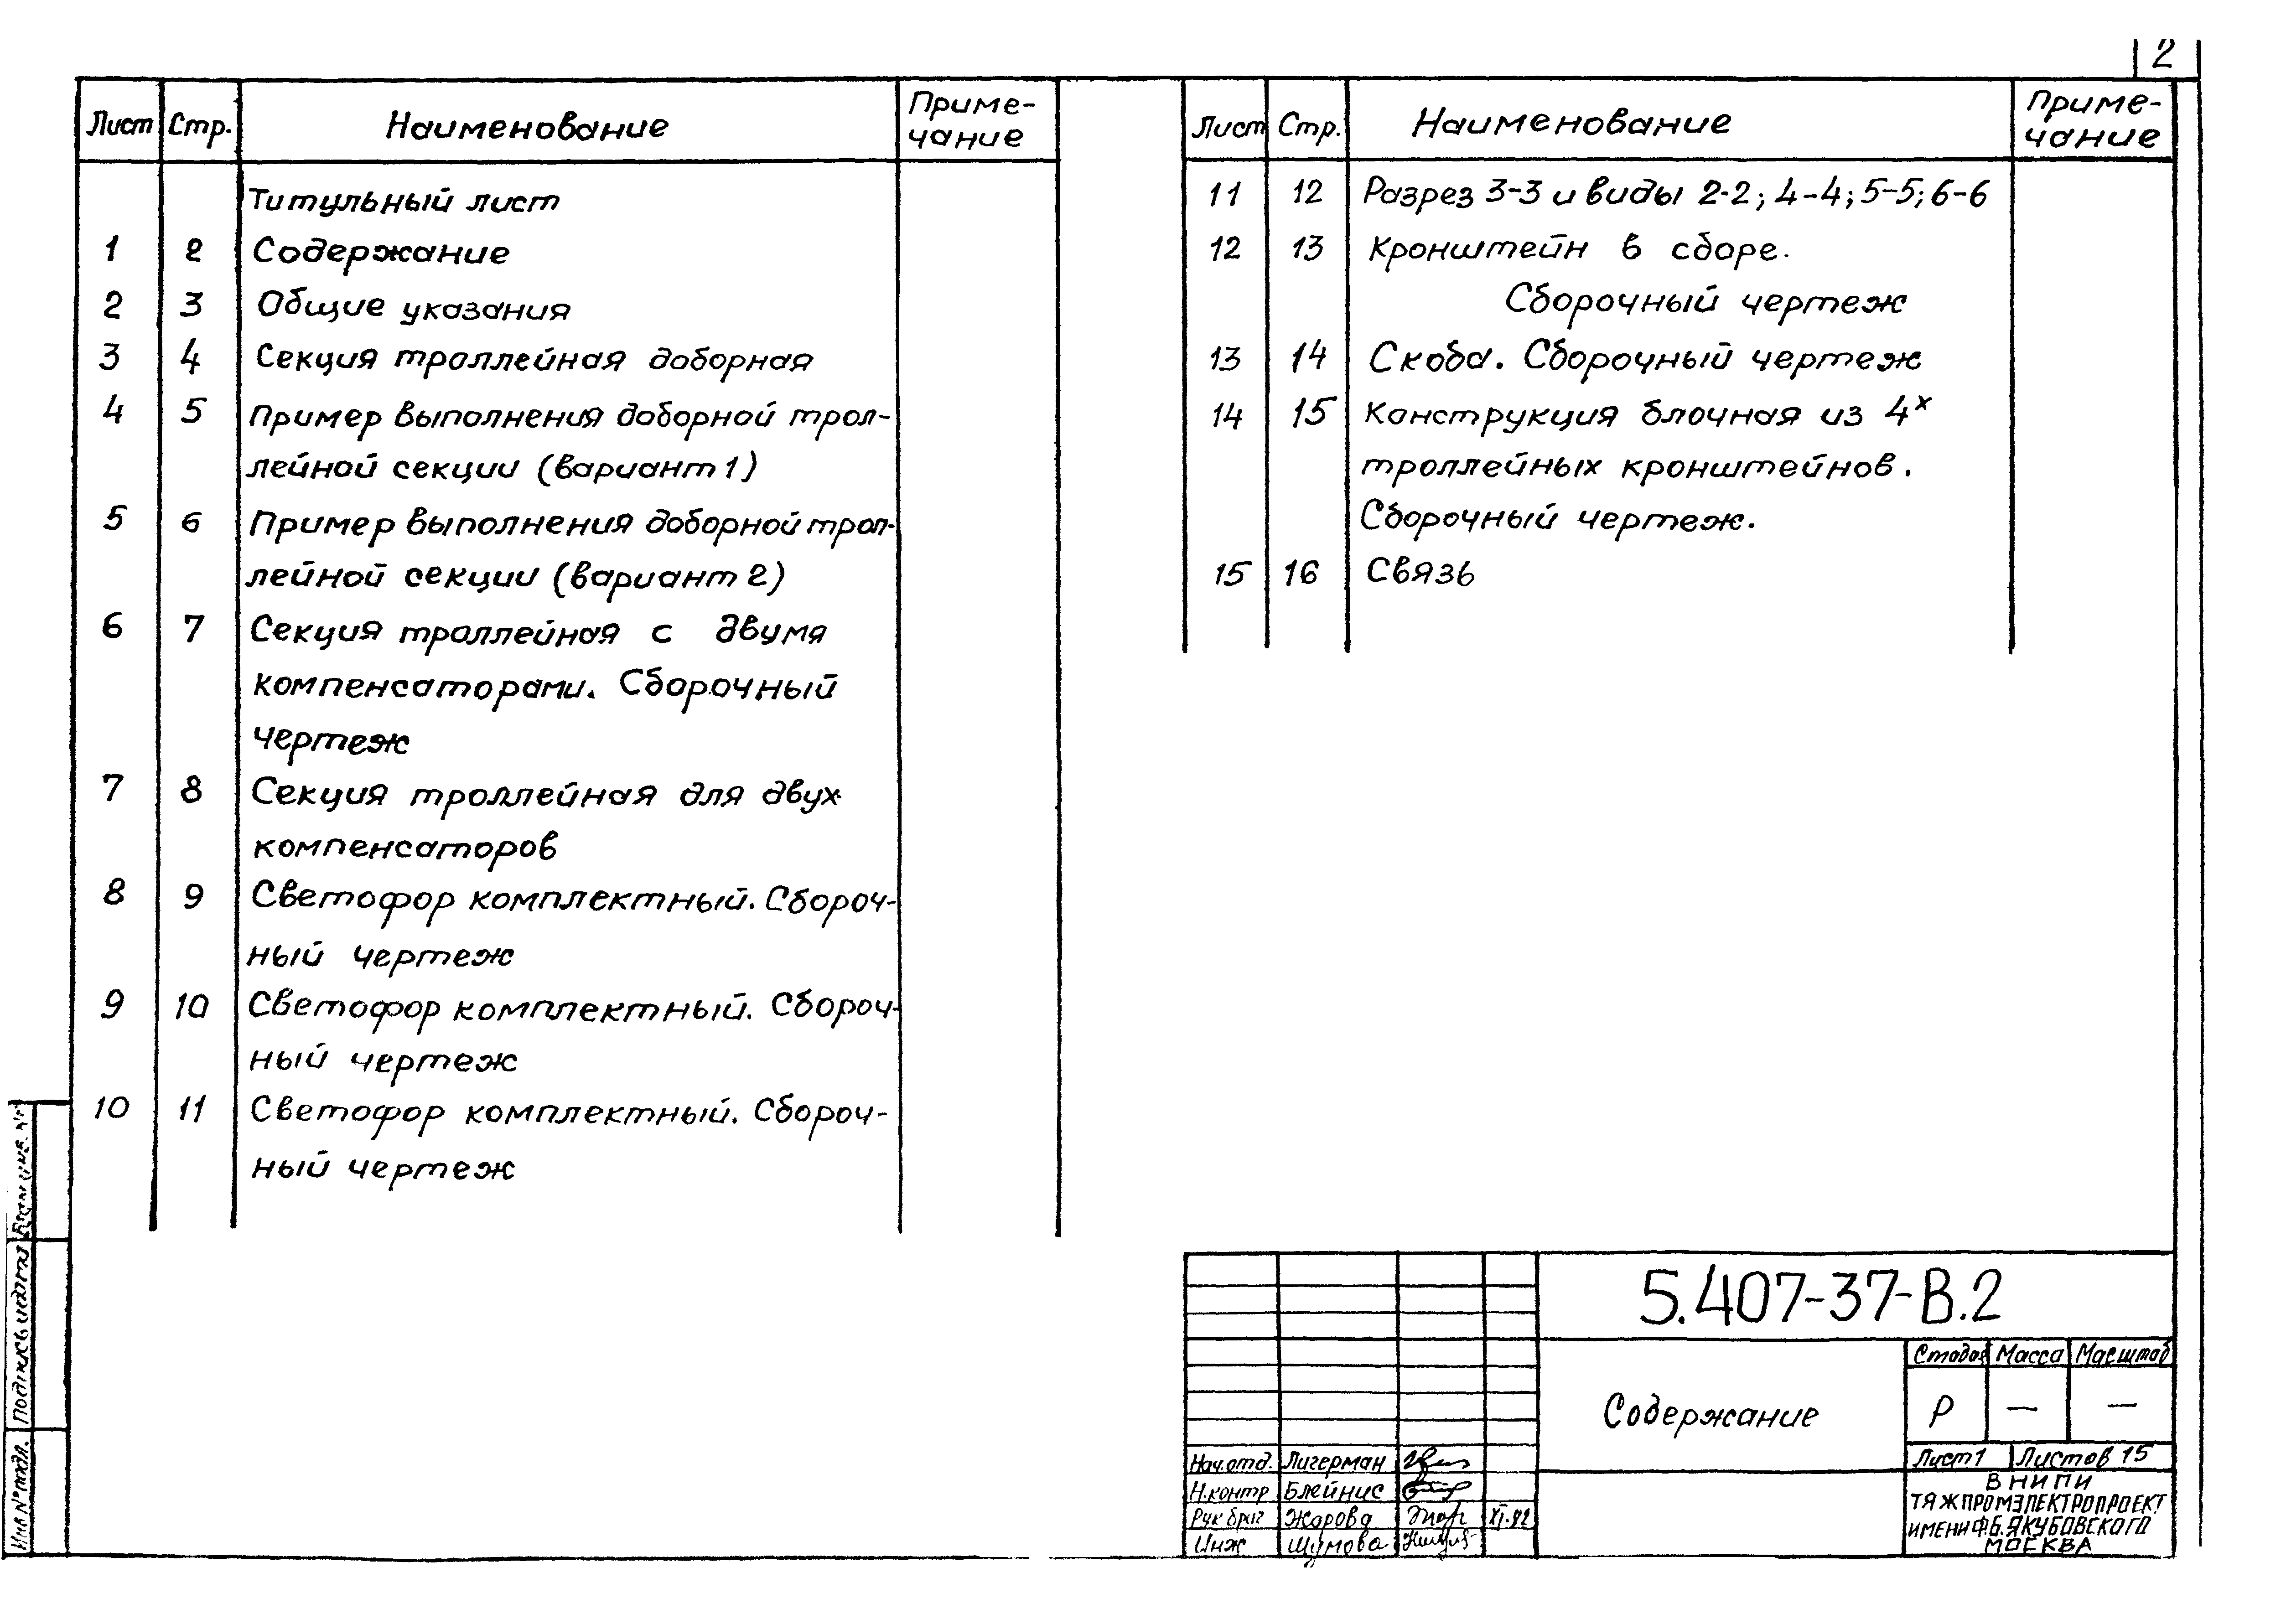 2
Лист Стр. Наименование Приме-
чание
Титульный лист
1 2 Содержание
2 3 Общие указания
3 4 Секция троллейная доборная
4 5 Пример выполнения доборной трол-
лейной секции (вариант 1)
5 6 Пример выполнения доборной трол-
лейной секции (вариант 2)
6 7 Секция троллейная с двумя
компенсаторами. Сборочный
чертеж
7 8 Секция троллейная для двух
компенсаторов
8 9 Светофор комплектный. Сбороч-
ный чертеж
9 10 Светофор комплектный. Сбороч-
ный чертеж
10 11 Светофор комплектный. Сбороч-
ный чертеж
Лист Стр. Наименование Приме-
чание
11 12 Разрез 3-3 и виды 2-2; 4-4; 5-5; 6-6
12 13 Кронштейн в сборе.
Сборочный чертеж
13 14 Скоба. Сборочный чертеж
14 15 Конструкция блочная из 4х
троллейных кронштейнов.
Сборочный чертеж.
15 16 Связь
5.407-37-В.2
Содержание
Стадия Масса Масштаб
Р — —
Лист 1 Листов 15
Нач.отд. Лигерман
Н.контр Блейнис
Рук бриг Жарова XI.82
Инж Шумова
ВНИПИ
ТЯЖПРОМЭЛЕКТРОПРОЕКТ
ИМЕНИ Ф.Б. ЯКУБОВСКОГО
МОСКВА
Взам инв. №
Подпись и дата
Инв № подл.